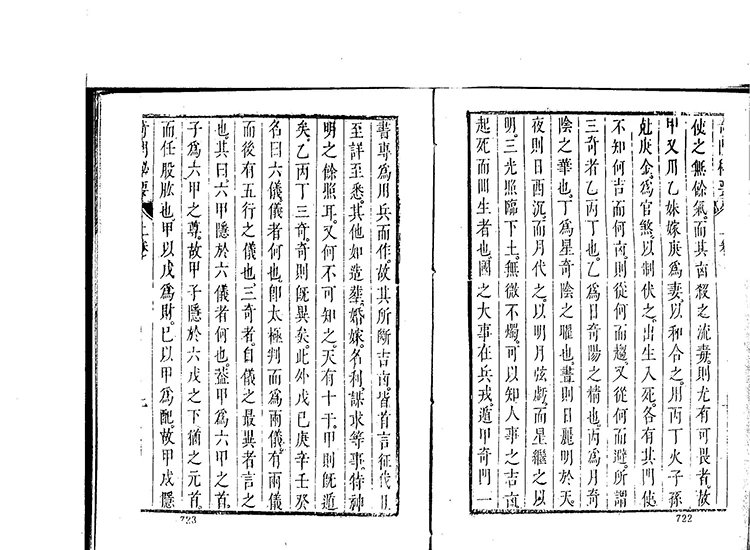 使之無餘氣而其凶殺之流毒則尤有可畏者故
甲又用乙妹嫁庚為妻以和合之用丙丁火子孫
尅庚金為官煞以制伏之出生入死各有其門使
不知何吉而何凶則從何而趨又從何而避所謂
三奇者乙丙丁也乙為日奇陽之精也丙為月奇
陰之華也丁為星奇陰之曜也晝則日麗明於天
夜則日西沉而月代之以明月弦虧而星繼之以
明三光照臨下土無微不燭可以知人事之吉凶
起死而回生者也國之大事在兵戎遁甲奇門一
722
書專為用兵而作故其所斷吉凶皆首言征伐且
至詳至悉其他如造塟婚嫁名利謀求等事特神
明之餘照耳又何不可知之天有十干甲則既遁
矣乙丙丁三奇奇則既異矣此外戊己庚辛壬癸
名曰六儀儀者何也卽太極判而為兩儀有兩儀
而後有五行之儀也三奇者自儀之最異者言之
也其曰六甲隱於六儀者何也葢甲為六甲之首
子為六甲之尊故甲子隱於六戊之下猶之元首
而任股肱也甲以戊為財己以甲為配故甲戌隱
奇門秘要 上卷
723